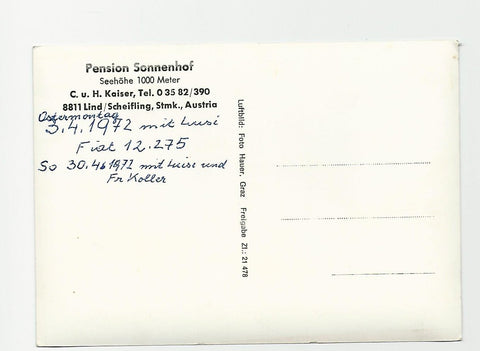 Pension Sonnenhof
Seehöhe 1000 Meter
C. u. H. Kaiser, Tel. 0 35 82/390
8811 Lind/Scheifling, Stmk., Austria
Ostermontag
3.4.1972 mit Lusi
Fiat 12.275
So 30.4.1972 mit Luise und
Fr Koller
Luftbild: Foto Hauer, Graz Freigabe Zl.: 21 478